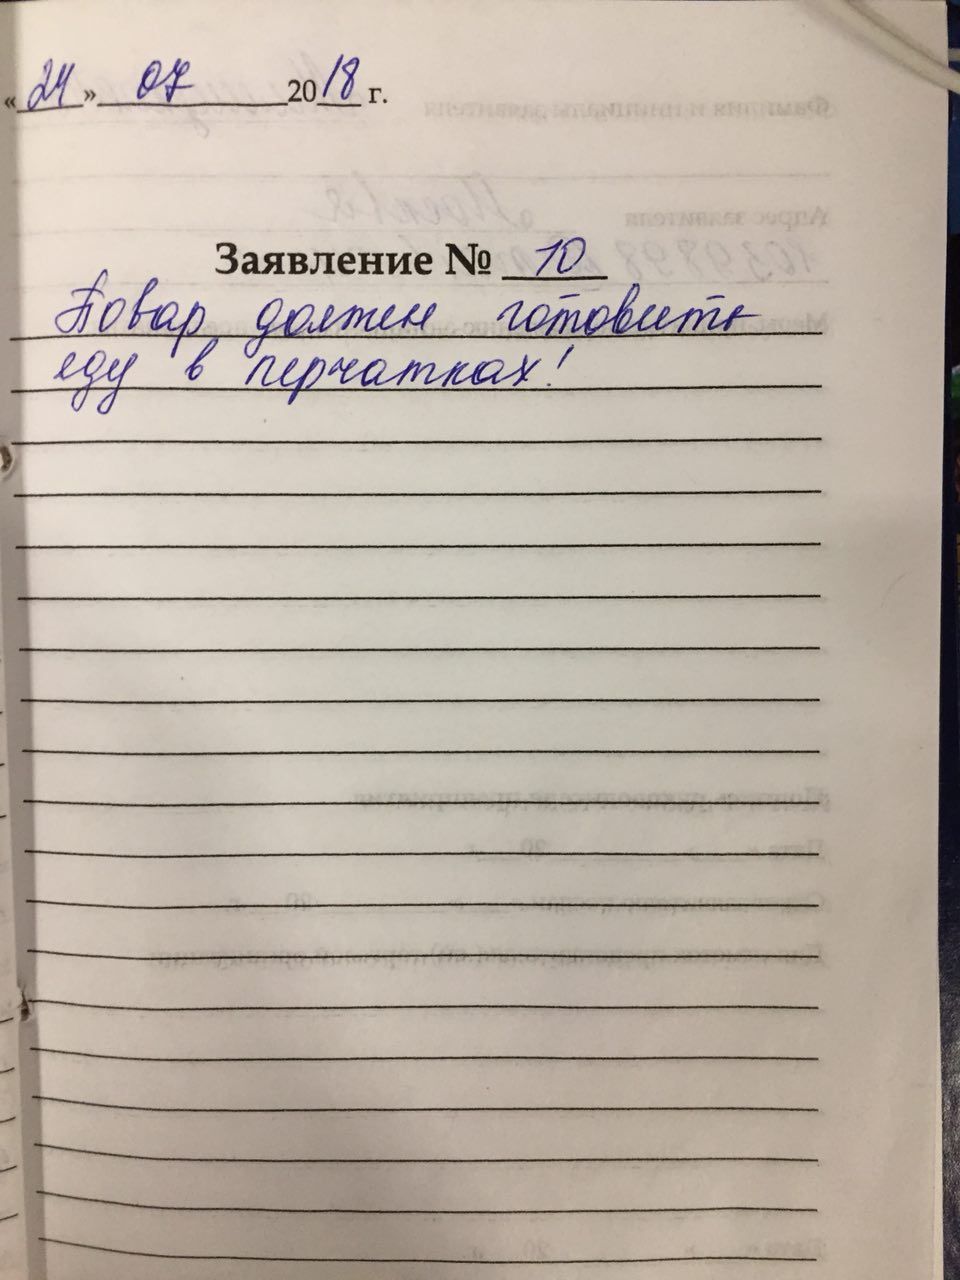 «24» 07 2018 г.
Заявление № 10
Повар должен готовить
еду в перчатках!